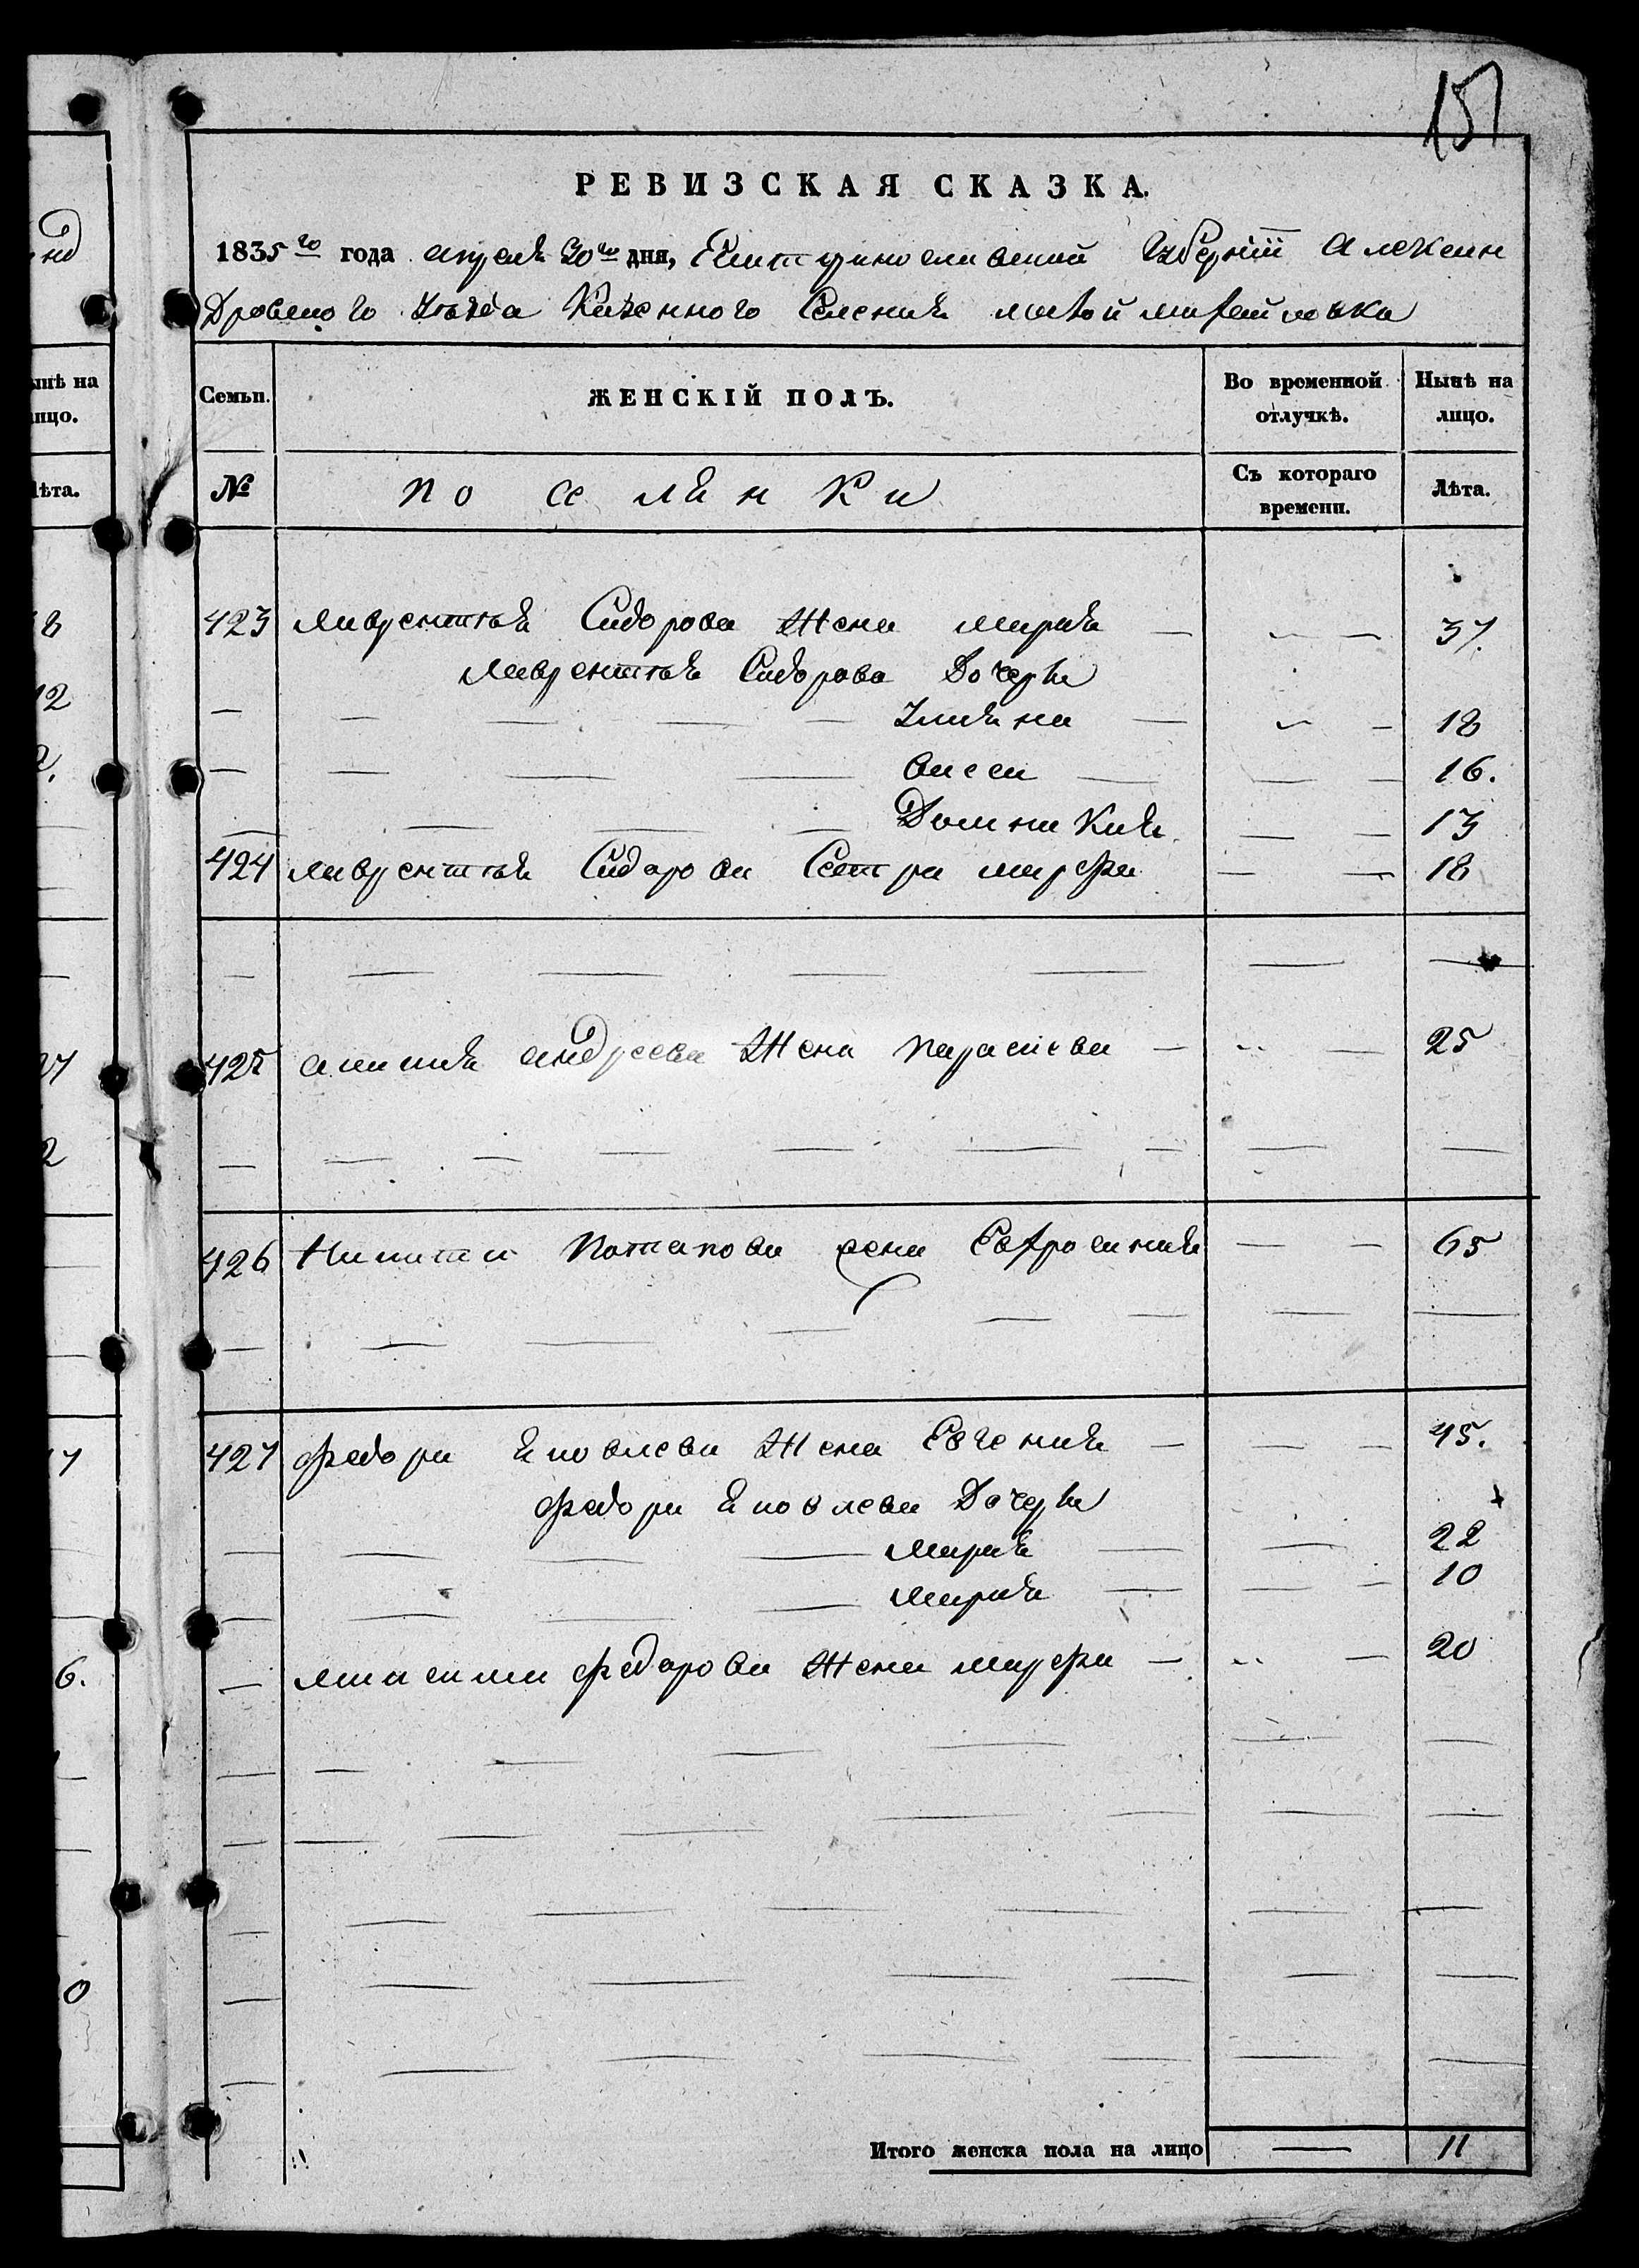 151
РЕВИЗСКАЯ СКАЗКА.
1835го года апреля 30го дня, Екатеринославской Губернии Алексан
Дровского Уезда Казенного Селения малой михайловка
Семьи. ЖЕНСКІЙ ПОЛЪ. Во временной отлучкѣ. Нынѣ на лицо.
№ поселянки Съ котораго времени. Лѣта.
423 лаврентія Сидорова Жена марія — — — 37.
лаврентія Сидорова Дочери
— — — — — Ульяна — — — 18
— — — — васса — — — 16.
— — — — Домникия — — 13
424 лаврентія Сидорова Сестра марфа — — 18
425 акима андреева Жена параскева — — — 25
426 Никиты Потапова жена Евфросиния — — 65
427 федора Яковлева Жена Евгения — — — 45.
федора Яковлева Дочери
— — — — мария — — 22
— — — — мария — — — 10
— максима федорова Жена марфа — — — 20
Итого женска пола на лицо — 11
ынѣ на
ицо.
ѣта.